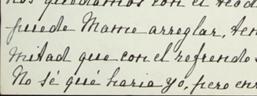 nos quedamos con el
puede Mamo arreglar, ten
mitad que con el refrendo
No sé qué haria yo, pero en